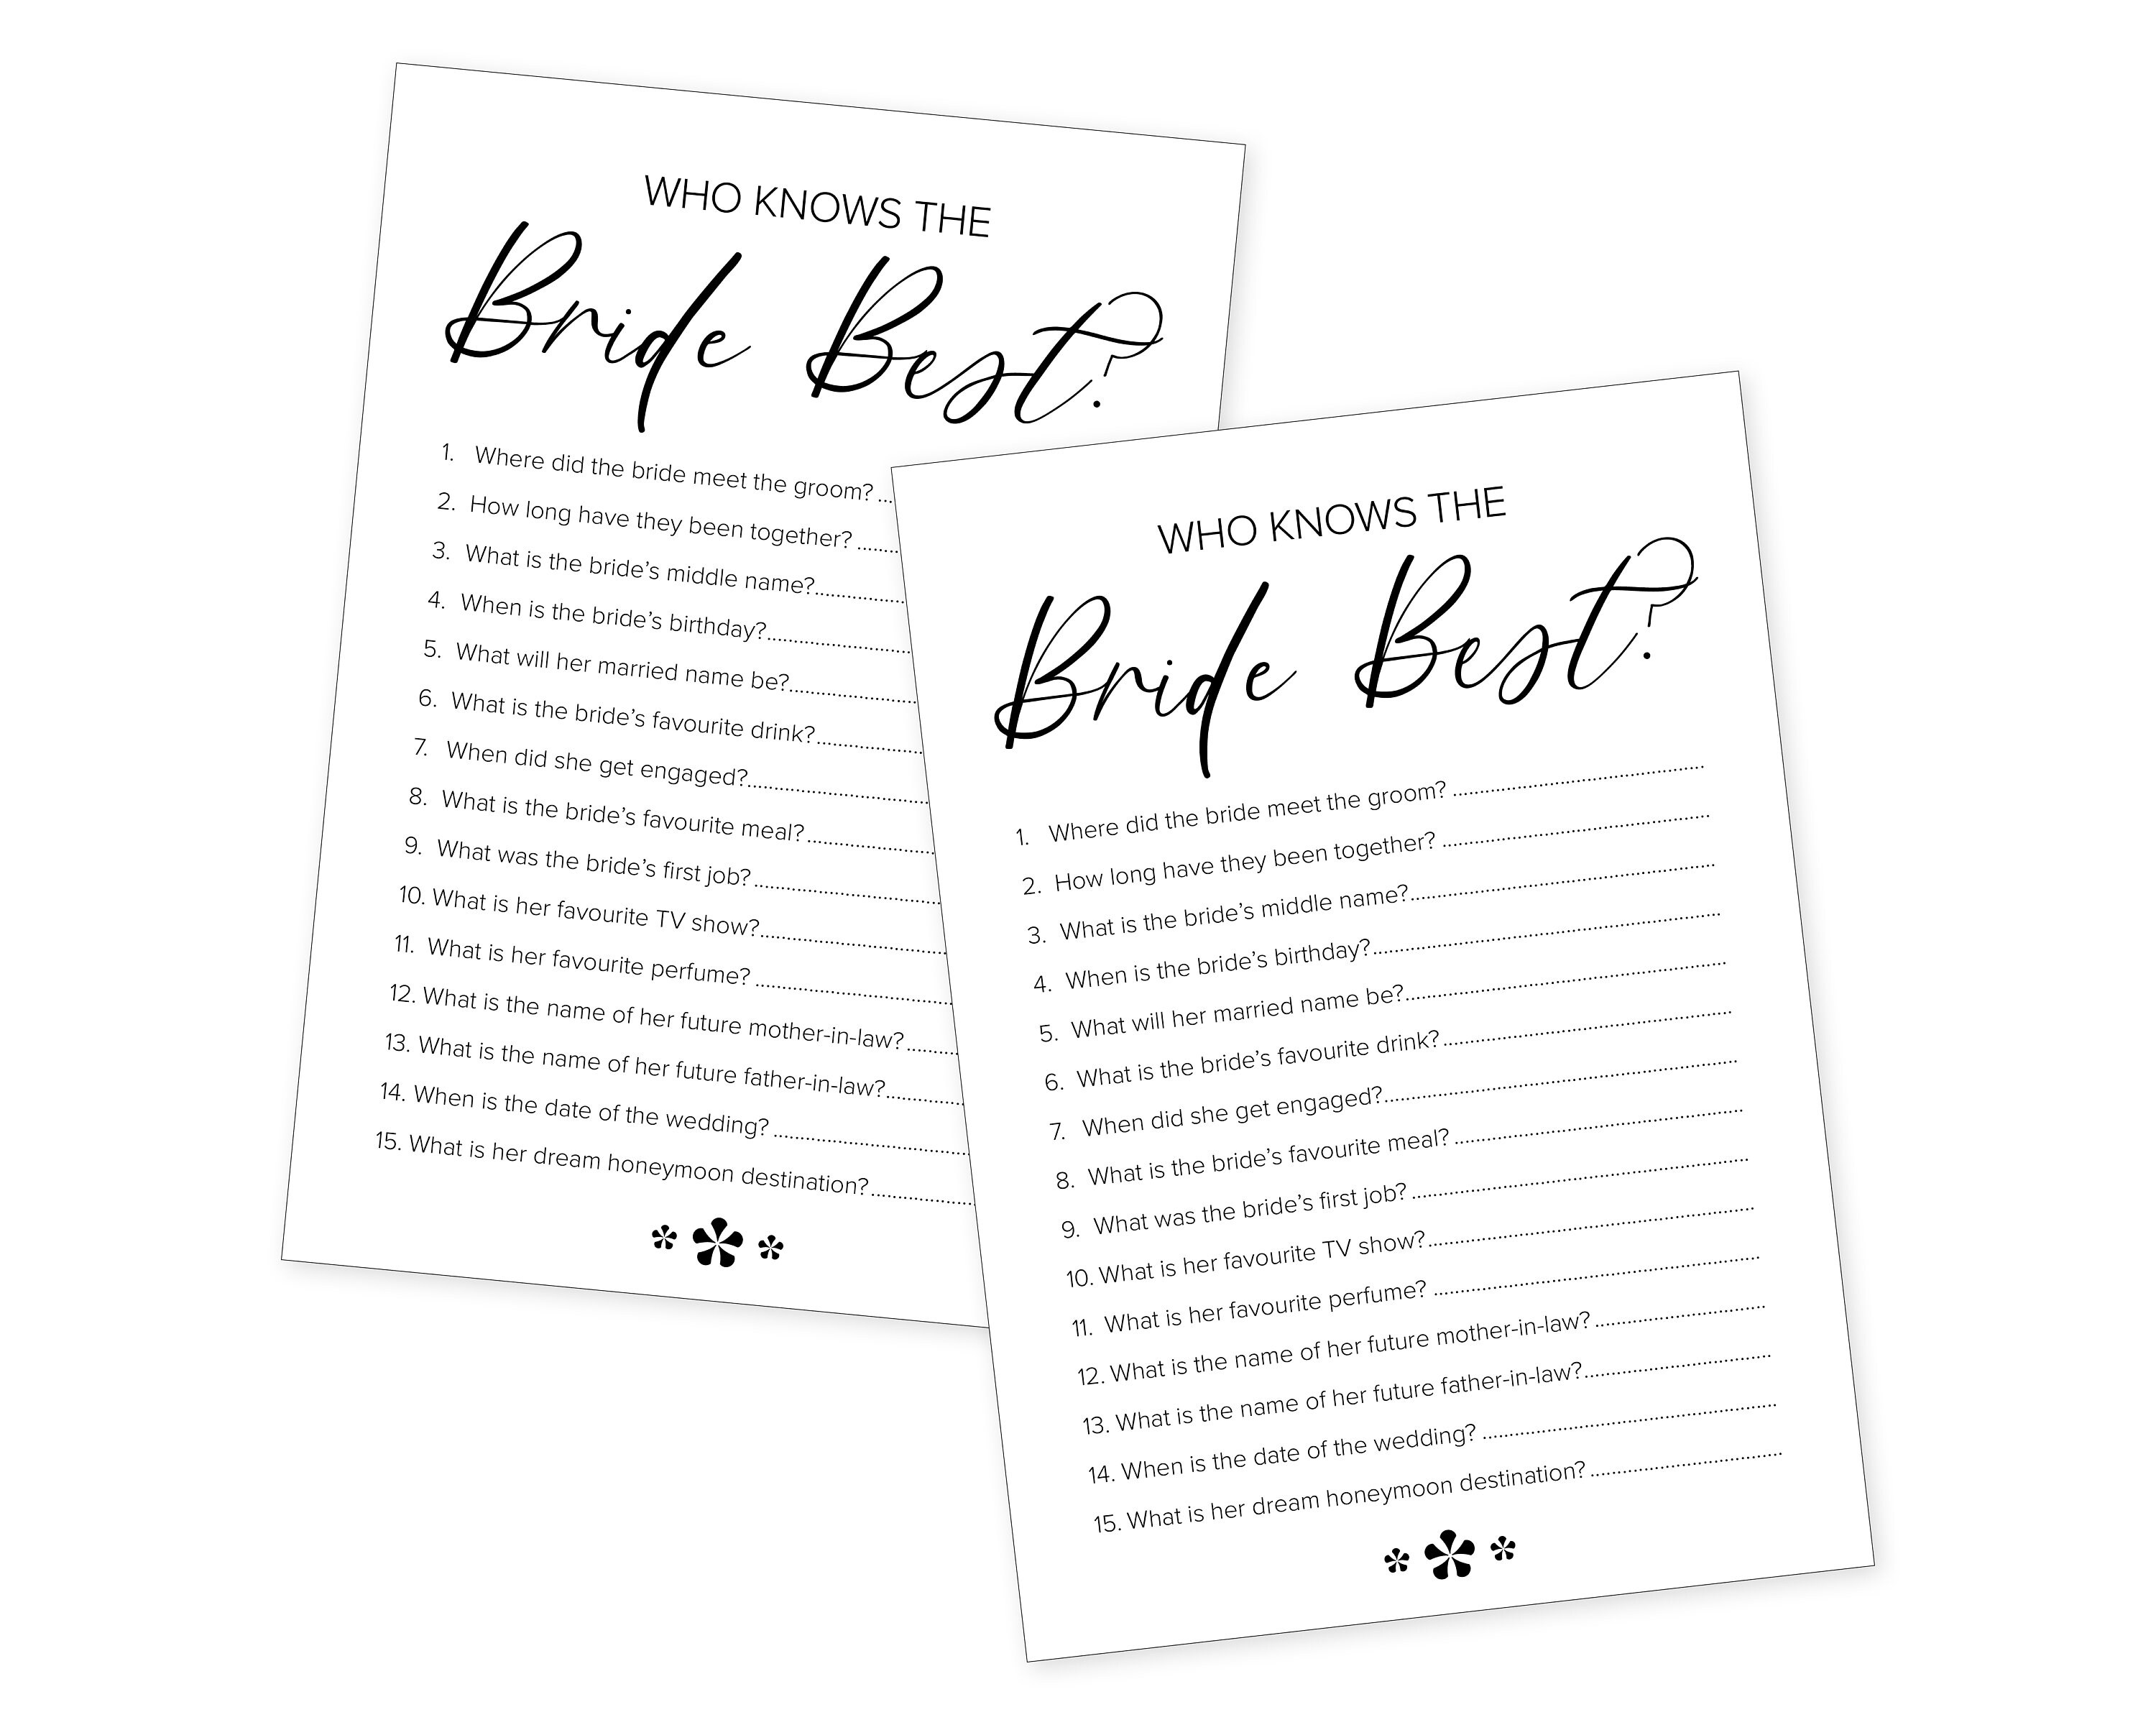 WHO KNOWS THE
Bride Best?
1. Where did the bride meet the groom? ...
2. How long have they been together? .......
3. What is the bride’s middle name?...............
4. When is the bride’s birthday?........................
5. What will her married name be?.....................
6. What is the bride’s favourite drink?.................
7. When did she get engaged?..............................
8. What is the bride’s favourite meal?.....................
9. What was the bride’s first job?..............................
10. What is her favourite TV show?..............................
11. What is her favourite perfume? ................................
12. What is the name of her future mother-in-law?.........
13. What is the name of her future father-in-law?.............
14. When is the date of the wedding? ................................
15. What is her dream honeymoon destination?.................
WHO KNOWS THE
Bride Best?
1. Where did the bride meet the groom? ..........................................
2. How long have they been together? .............................................
3. What is the bride’s middle name?...................................................
4. When is the bride’s birthday?..........................................................
5. What will her married name be?.....................................................
6. What is the bride’s favourite drink?................................................
7. When did she get engaged?...........................................................
8. What is the bride’s favourite meal? ................................................
9. What was the bride’s first job? ........................................................
10. What is her favourite TV show?......................................................
11. What is her favourite perfume? ......................................................
12. What is the name of her future mother-in-law? ............................
13. What is the name of her future father-in-law?...............................
14. When is the date of the wedding? .................................................
15. What is her dream honeymoon destination? ................................